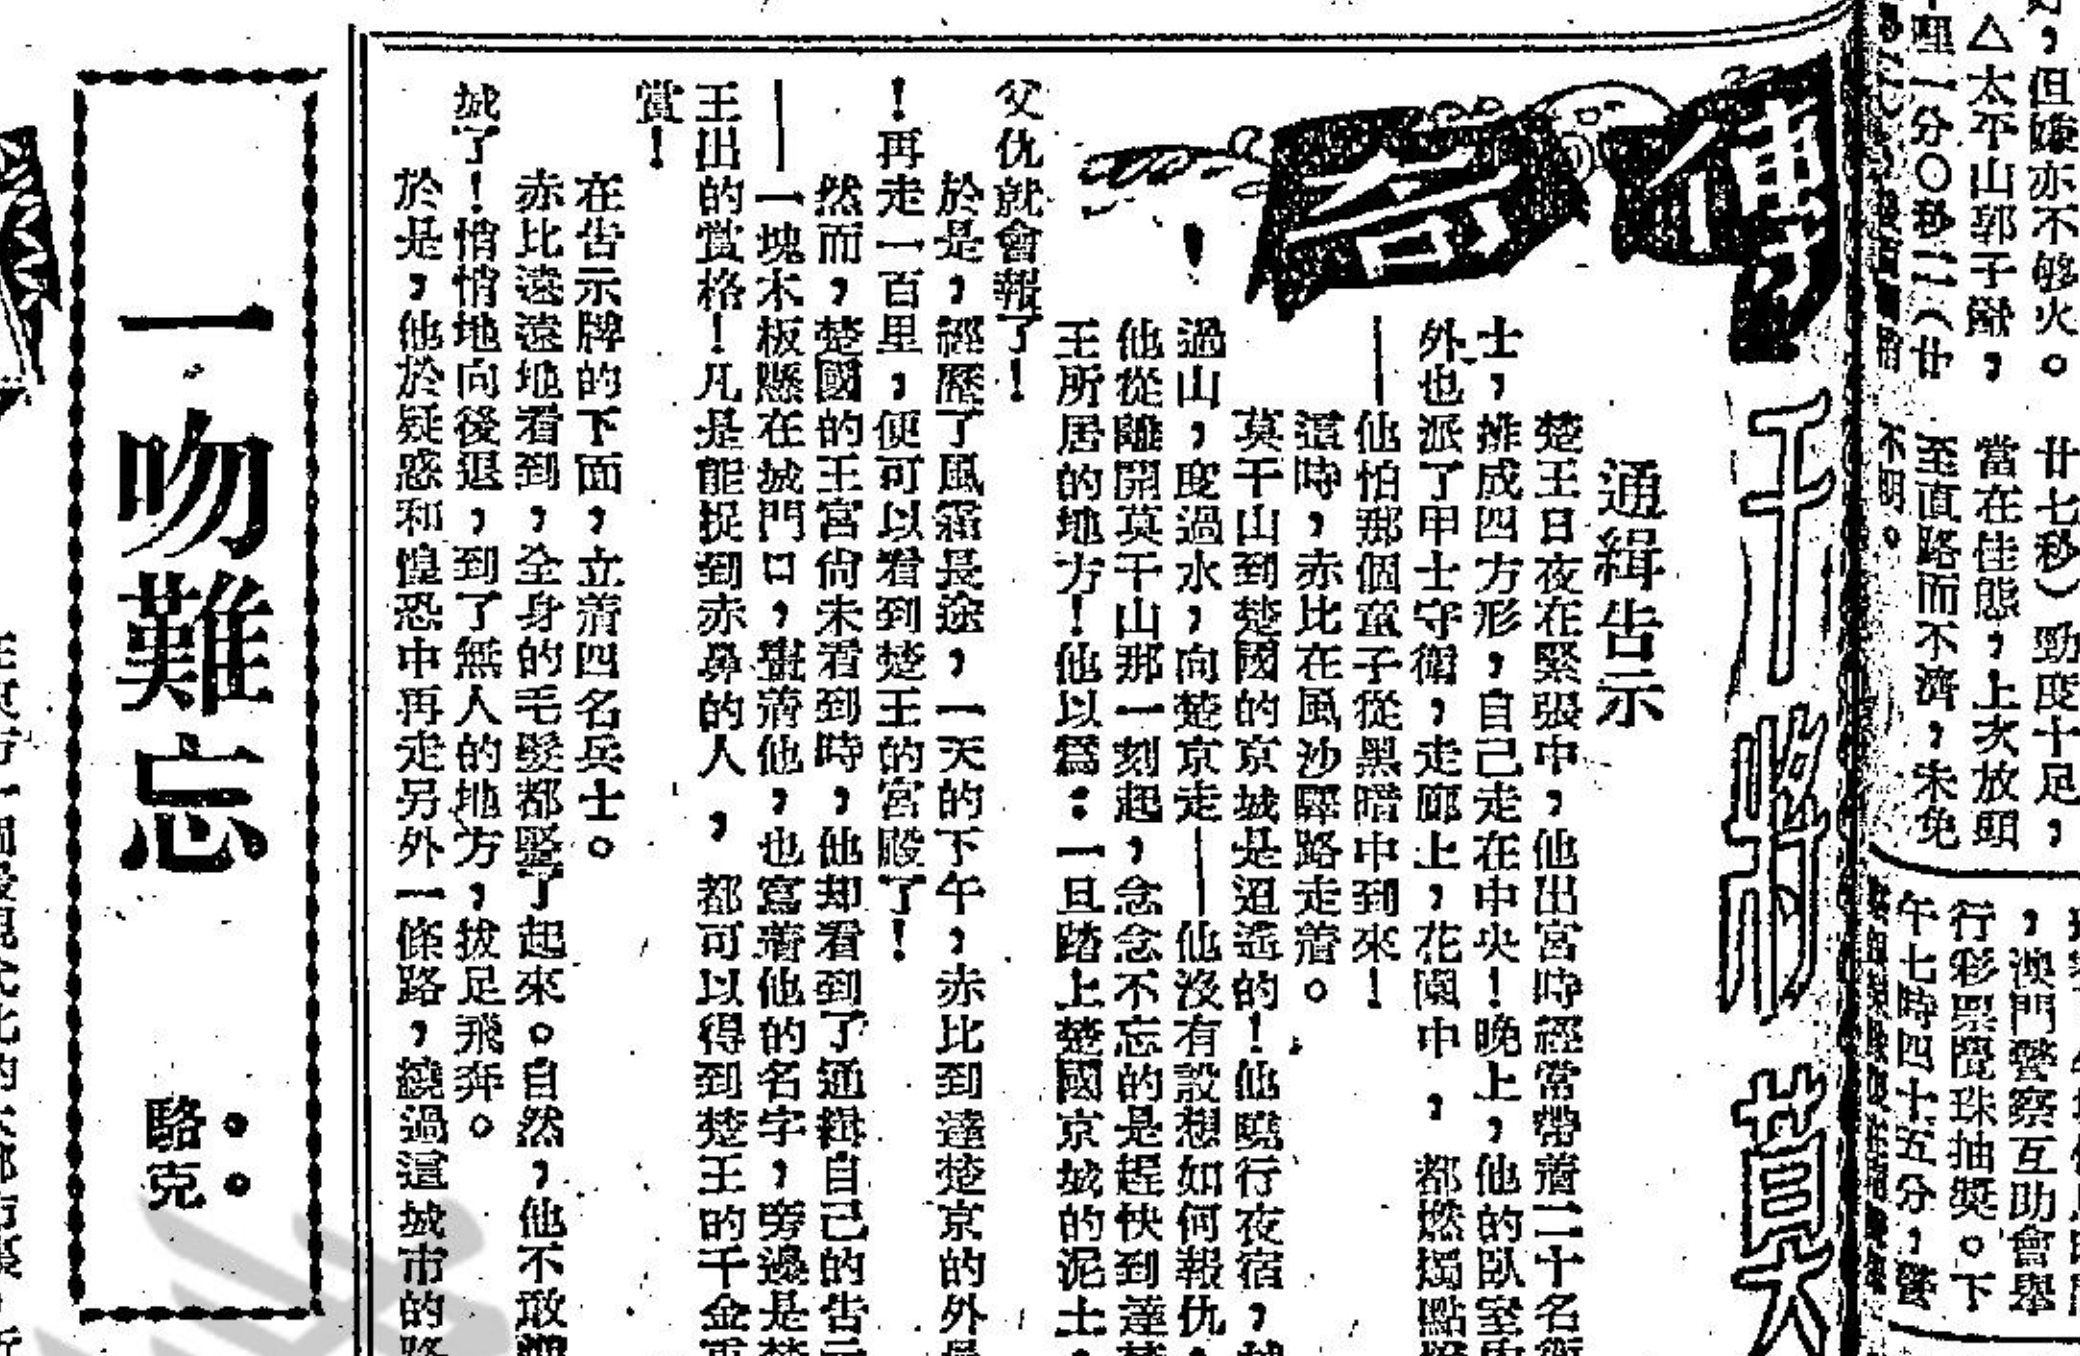 好，但嫌亦不够火。
△太平山郭子猷，
哩一分〇秒二（廿
廿七秒）勁度十足，
當在佳態，上次放頭
至直路而不濟，未免
不期。
，澳門警察互助會舉
行彩票攪珠抽獎。下
午七時四十五分，警
傳奇
干將莫
通緝告示
楚王日夜在緊張中，他出宮時經常帶着二十名衛
士，排成四方形，自己走在中央！晚上，他的臥室內
外也派了甲士守衛，走廊上，花園中，都燃燭點燈
——他怕那個童子從黑暗中到來！
這時，赤比在風沙驛路走着。
莫干山到楚國的京城是迢遙的！他曉行夜宿，越
過山，度過水，向楚京走——他沒有設想如何報仇，
他從離開莫干山那一刻起，念念不忘的是趕快到達楚
王所居的地方！他以爲：一旦踏上楚國京城的泥土，
父仇就會報了！
於是，經歷了風霜長途，一天的下午，赤比到達楚京的外是
！再走一百里，便可以看到楚王的宮殿了！
然而，楚國的王宮尙未看到時，他却看到了通緝自己的告示
——一塊木板懸在城門口，畫着他，也寫着他的名字，旁邊是楚
王出的賞格！凡是能捉到赤鼻的人，都可以得到楚王的千金重
賞！
在告示牌的下面，立着四名兵士。
赤比遠遠地看到，全身的毛髮都豎了起來。自然，他不敢
城了！悄悄地向後退，到了無人的地方，拔足飛奔。
於是，他於疑惑和惶恐中再走另外一條路，繞過這城市的路
一吻難忘
駱克